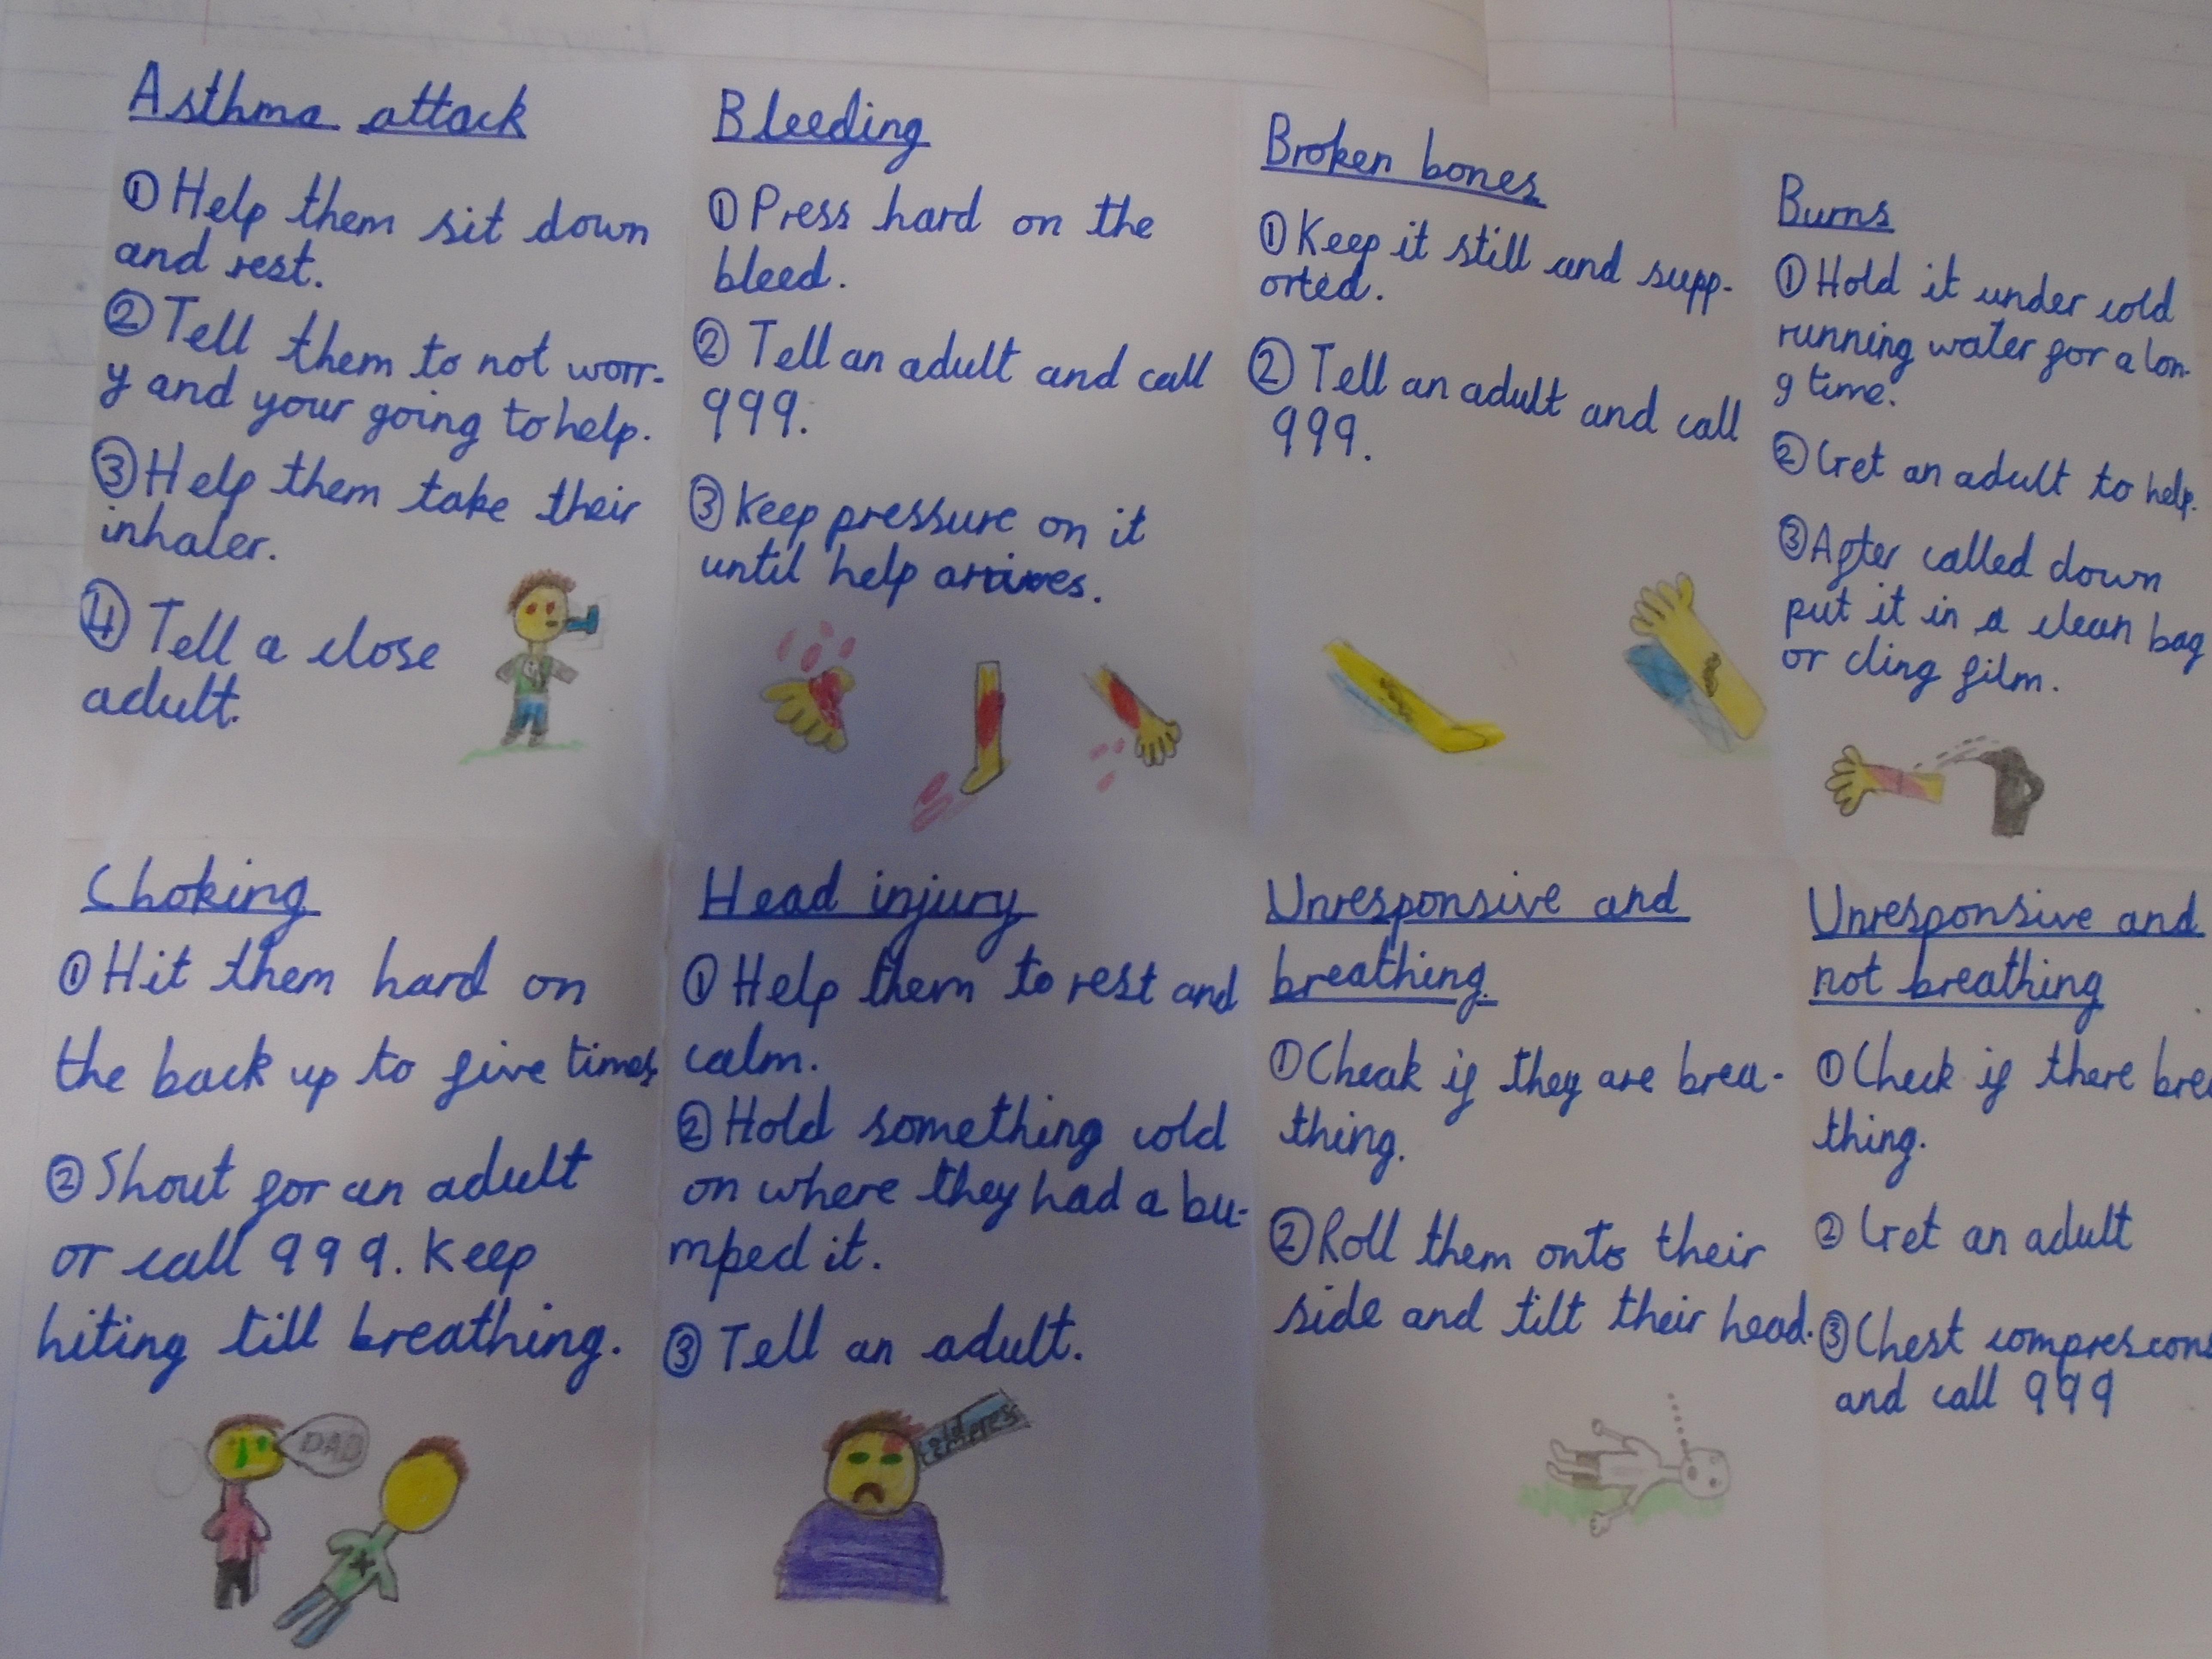 Asthma attack
① Help them sit down
and rest.
② Tell them to not worr-
y and your going to help.
③ Help them take their
inhaler.
④ Tell a close
adult.
Bleeding
① Press hard on the
bleed.
② Tell an adult and call
999.
③ Keep pressure on it
until help arrives.
Broken bones
① Keep it still and supp-
orted.
② Tell an adult and call
999.
Burns
① Hold it under cold
running water for a lon-
g time.
② Get an adult to help.
③ After called down
put it in a clean bag
or cling film.
Choking
① Hit them hard on
the back up to five times
② Shout for an adult
or call 999. Keep
hiting till breathing.
DAD
Head injury
① Help them to rest and
calm.
② Hold something cold
on where they had a bu-
mped it.
③ Tell an adult.
cold
Unresponsive and
breathing
① Cheak if they are brea-
thing.
② Roll them onto their
side and tilt their head.
Unresponsive and
not breathing
① Check if there brea
thing.
② Get an adult
③ Chest comprescons
and call 999